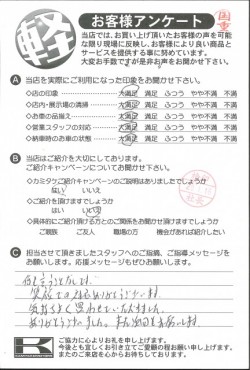 軽
お客様アンケート
国重
当店では、お買い上げ頂いたお客様の声を可能
な限り現場に反映し、お客様により良い商品と
サービスを提供する事に努めています。
大変お手数ですが是非お声をお聞かせ下さい。
A 当店を実際にご利用になった印象をお聞かせ下さい。
◇店の印象 大満足 満足 ふつう やや不満 不満
◇店内・展示場の清掃 大満足 満足 ふつう やや不満 不満
◇お車の品揃え 大満足 満足 ふつう やや不満 不満
◇営業スタッフの対応 大満足 満足 ふつう やや不満 不満
◇納車時のお車の状態 大満足 満足 ふつう やや不満 不満
B 当店はご紹介を大切にしております。
ご紹介キャンペーンについてお聞かせ下さい。
◇カミタケご紹介キャンペーンのご説明はありましたでしょうか
はい いいえ
◇ご紹介を頂けますでしょうか
はい いいえ
◇具体的にご紹介頂ける方とのご関係をお聞かせ頂けますでしょうか
ご親族 ご友人 職場の方 機会があれば紹介したい
C 担当させて頂きましたスタッフへのご指摘、ご指導メッセージを
お願いします。応援メッセージもぜひお願いします。
ありがとうございました。
ご協力に心よりお礼を申し上げます。
今後とも宜しくお引き立てご愛顧の程お願い申し上げます。
またのご来店を心からお待ちしております。